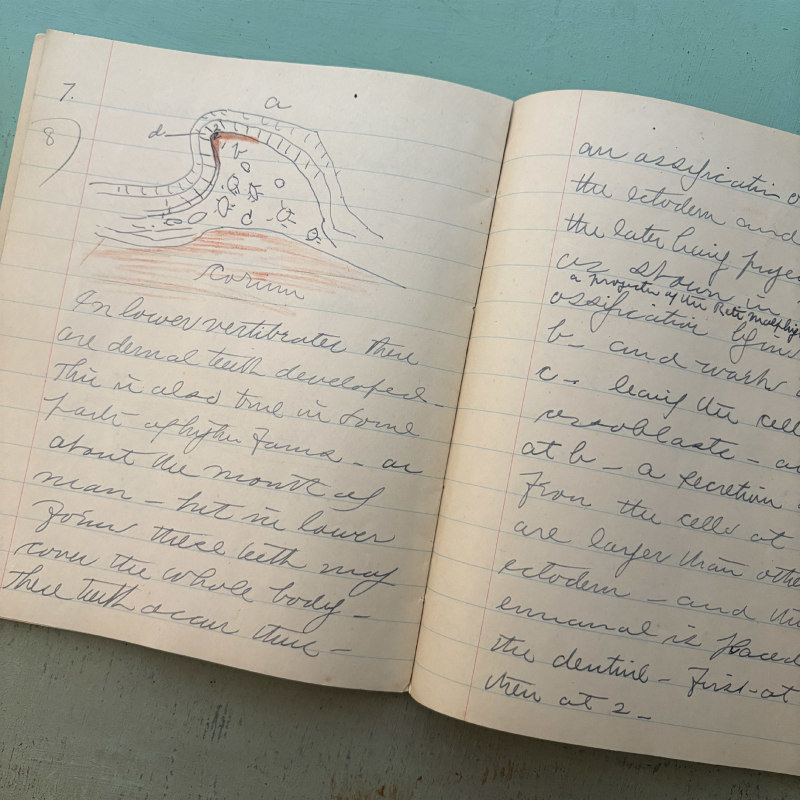 7.
8)
a
d
2
b
c
Corium
In lower vertibrates there
are dermal teeth developed -
This is also true in some
parts of higher forms - as
about the mouth of
man - but in lower
forms these teeth may
cover the whole body -
These teeth occur thus -
an ossification o
the ectoderm and
the later being
as shown in
a projection of the Rete Malphigi
ossification begins
b - and works
c - leaving the cell
at b - a secretion
from the cells at
are larger than othe
ectoderm - and the
enmanal is placed
the dentine - First - at
then at 2 -